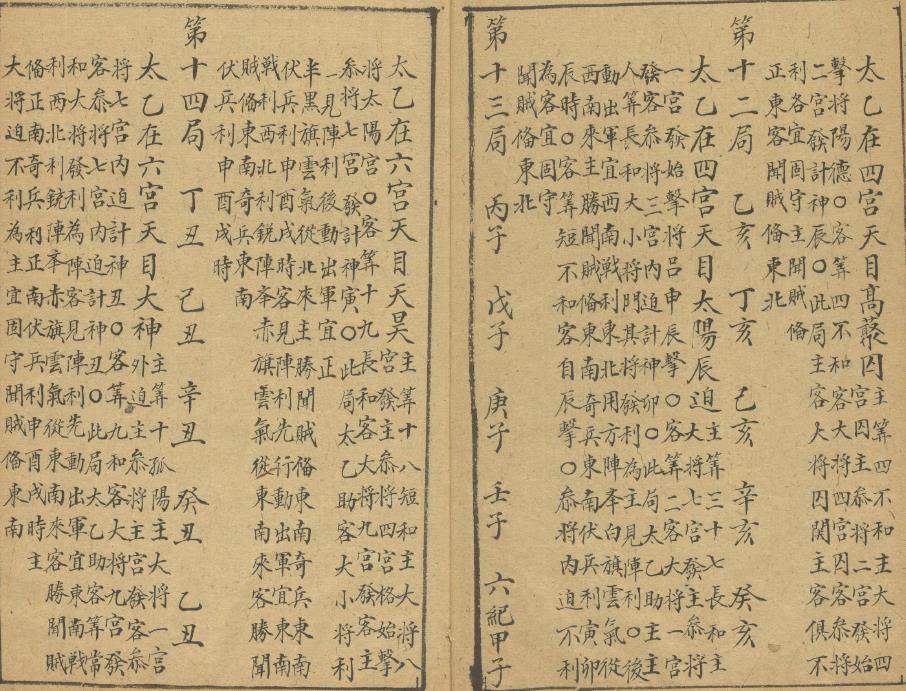 太乙在四宮天目高叢囚主算四不和主大將四
宮囚主參將二宮發始
擊將陽德〇客算四不和客大將四宮囚客參將
二宮發計神辰〇此局主客大將囚關主客俱不
利各宜固守主聞賊俻
正東客聞賊俻東北
第十二局 乙亥 丁亥 己亥 辛亥 癸亥
太乙在四宮天目太陽辰迫主算三十七長和主
大將七宮發主參將
一宮發始擊將呂申辰擊〇客算二客大將一宮
發客參將三宮內迫計神卯〇此局太乙助主主
人算長和大小將門具將發利為主見陣利後
動出軍宜西南戰利東北用方陣夲白旗雲氣從
西南來主勝聞賊俻東南奇兵東南伏兵利寅卯
辰時〇客算短不和客自辰擊〇參將內迫不利
為客宜固守
聞賊俻東北
第十三局 丙子 戊子 庚子 壬子 六紀甲子
太乙在六宮天目天昊主算十八短和主大將八
宮發主參將四宮格始擊
將太陽宮〇客算十九長和客大將九宮發客主
參將七宮發計神寅〇此局太乙助客大小將利
一見陣利後動出軍宜正
半黑旗雲氣從北來主勝聞賊俻東南奇兵東南
伏兵利申酉戌時客見陣利先行動出軍宜東南
戰利西北利銳陣夲赤旗雲氣從東南來客勝聞
賊俻東南奇兵東南
伏兵利申酉戌時
第十四局 丁丑 己丑 辛丑 癸丑 乙丑
太乙在六宮天目大神主算十孤陽主大將一宮
外迫主參將主宮發客參
將七宮內迫計神丑〇客算九和客大將九宮發
客參將七宮內迫計神丑〇此局太乙助客算常
和大將發利為陣客見陣利先動出軍宜東南戰
利西北利銳陣夲赤旗雲氣從東南來客勝聞賊
俻正南奇兵利正南伏兵利申酉戌時主
大將迫不利為主宜固守聞賊俻東南